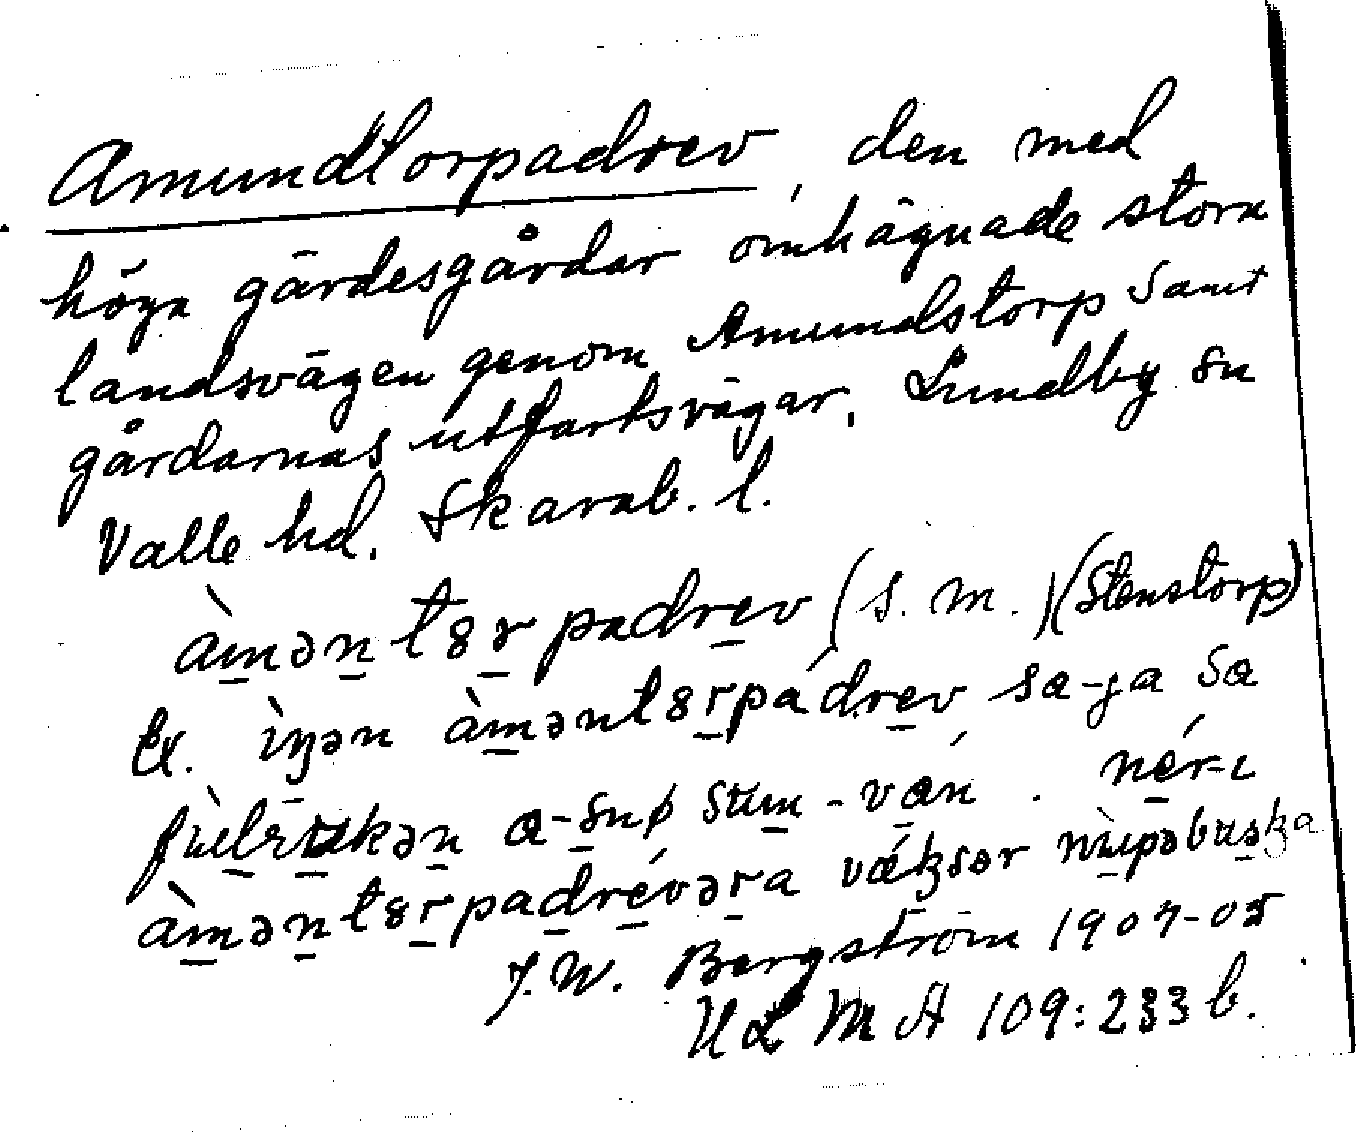 Amundtorpadrev, den med
höga gärdesgårdar omhägnade stora
landsvägen genom Amundstorp samt
gårdarnas utfartsvägar. Lundby sn
Valle hd. Skarab. l.
àmənt8rpadrev (s. m.) (Stenstorp)
Ex. ìŋən àmənt8rpádrev sa-ja sa
a-snø stum-ván. nér-ı
àmənt8rpadrévəra
J. W. Bergström 1904-05
ULMA 109:233 b.